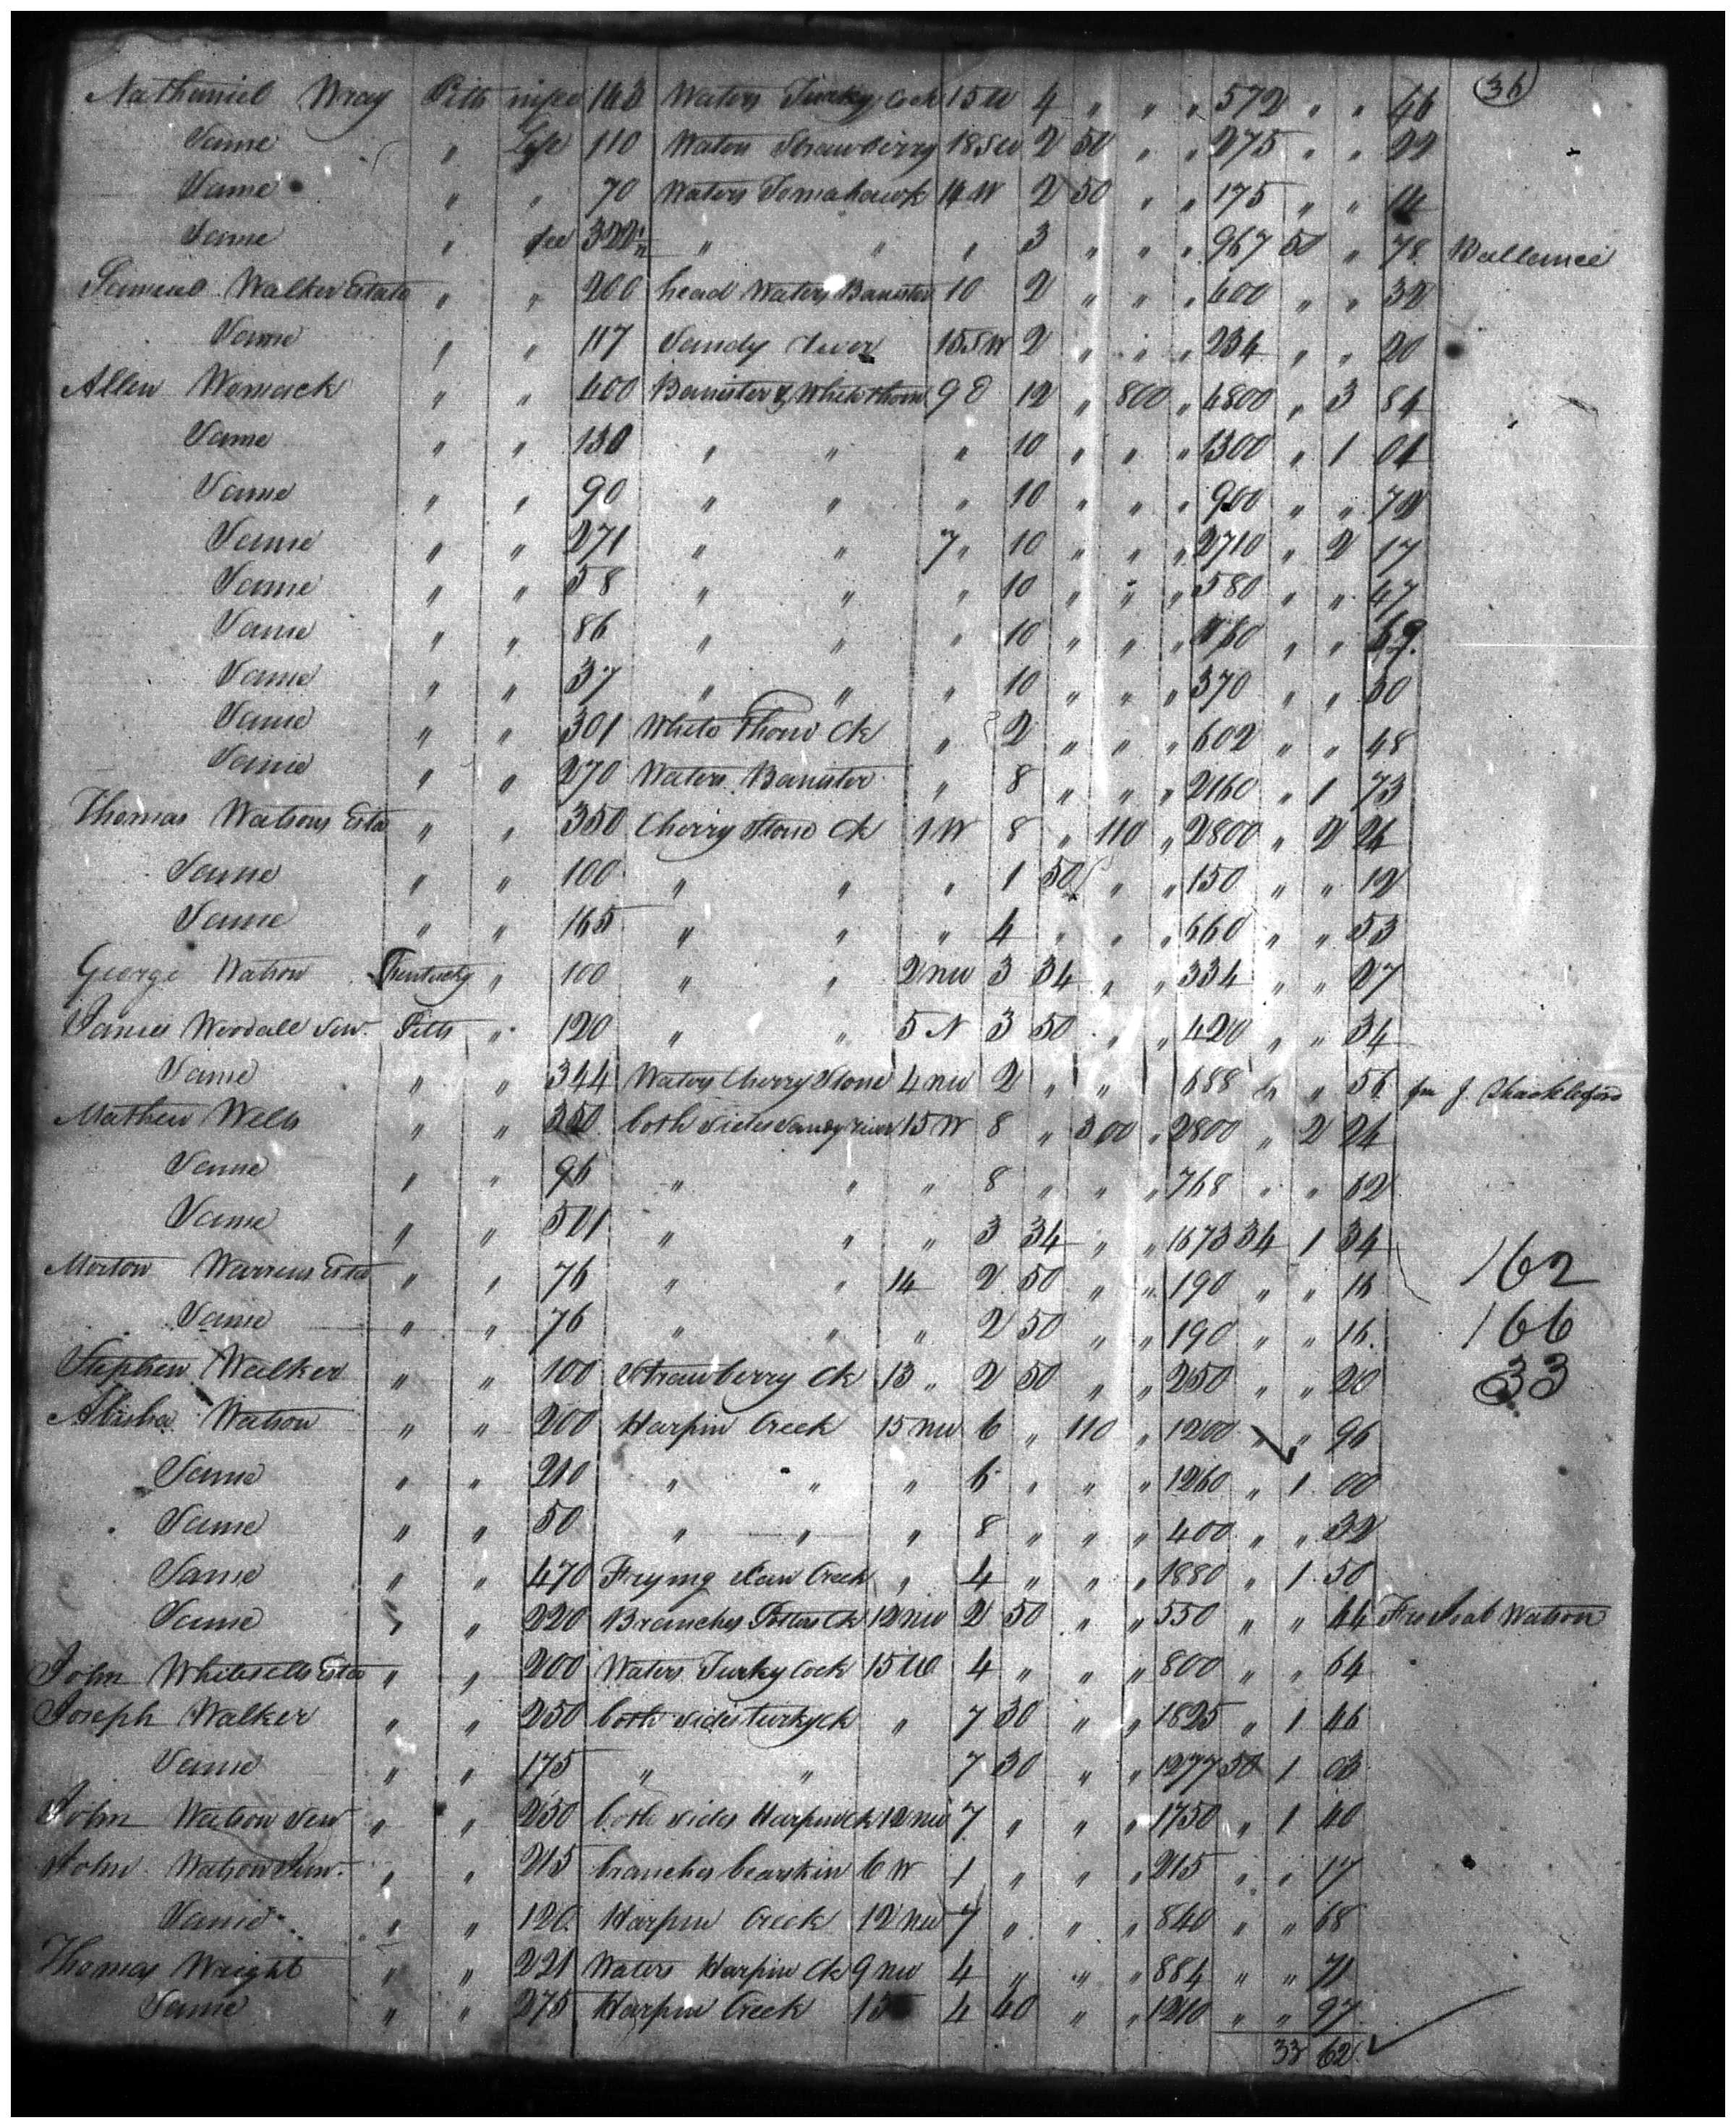 36
Nathaniel Wray Pitts wife 143 Waters Turky Cock 15 W 4 " " " 572 " " 46
Same " Life 110 Waters Strawberry 18 SW 2 50 " " 275 " " 22
Same " " 70 Waters Tomahawk 14 W 2 50 " " 175 " " 14
Same " fee 322½ " " " 3 " " " 967 50 " 78
Samuel Walker Estate " " 200 head Waters Banister 10 2 " " " 400 " " 32
Same " " 117 Sandy river 15 SW 2 " " " 234 " " 20
Allen Womack " " 400 Banister & Whitethorn 9 E 12 " 800 " 4800 " 3 84
Same " " 130 " " " 10 " " " 1300 " 1 04
Same " " 90 " " " 10 " " " 900 " " 72
Same " " 271 " " 7 " 10 " " " 2710 " 2 17
Same " " 58 " " " 10 " " " 580 " " 47
Same " " 86 " " " 10 " " " 860 " " 69
Same " " 37 " " " 10 " " " 370 " " 30
Same " " 301 White Thorn Ck " 2 " " " 602 " " 48
Same " " 270 Waters Banister " 8 " " " 2160 " 1 73
Thomas Watsons Esta " " 350 Cherry Stone Ck 1 W 8 " 110 " 2800 " 2 24
Same " " 100 " " " 1 50 " " 150 " " 12
Same " " 165 " " " 4 " " " 660 " " 53
George Watson Kentucky " 100 " " 2 NW 3 34 " " 334 " " 27
James Woodall Sen. Pitts " 120 " " 5 N 3 50 " " 420 " " 34
Same " " 344 Waters Cherry Stone 4 NW 2 " " 688 " " 56 fm J. Shackleford
Mathew Wells " " 350 both sides Sandy river 15 W 8 " 300 " 2800 " 2 24
Same " " 96 " " " 8 " " " 768 " " 62
Same " " 501 " " " 3 34 " " 1673 34 1 34
Morton Warrens Esta " " 76 " " 14 2 50 " " 190 " " 16 162
Same " " 76 " " " 2 50 " " 190 " " 16 166
Stephen Walker " " 100 Strawberry Ck 13 " 2 50 " " 250 " " 20 33
Abisha Watson " " 200 Harpin Creek 15 NW 6 " 110 " 1200 " " 96
Same " " 210 " " " 6 " " " 1260 " 1 00
Same " " 50 " " " 8 " " " 400 " " 32
Same " " 470 Frying Pan Creek " 4 " " " 1880 " 1 50
Same " " 220 Branches Potters Ck 12 NW 2 50 " " 550 " " 44 Watson
John Whitesells Esta " " 200 Waters Turky Cock 15 W 4 " " " 800 " " 64
Joseph Walker " " 250 both sides turky ck " 7 30 " " 1825 " 1 46
Same " " 175 " " 7 30 " " 1277 50 1 03
John Watson Sen " " 250 both sides Harpin Ck 12 NW 7 " " " 1750 " 1 40
John Watson Jun. " " 215 branches bearskin 6 W 1 " " " 215 " " 17
Same " " 120 Harpin Creek 12 NW 7 " " " 840 " " 68
Thomas Wright " " 221 Waters Harpin Ck 9 NW 4 " " " 884 " " 71
Same " " 275 Harpin Creek 15 4 40 " " 1210 " " 97
33 62